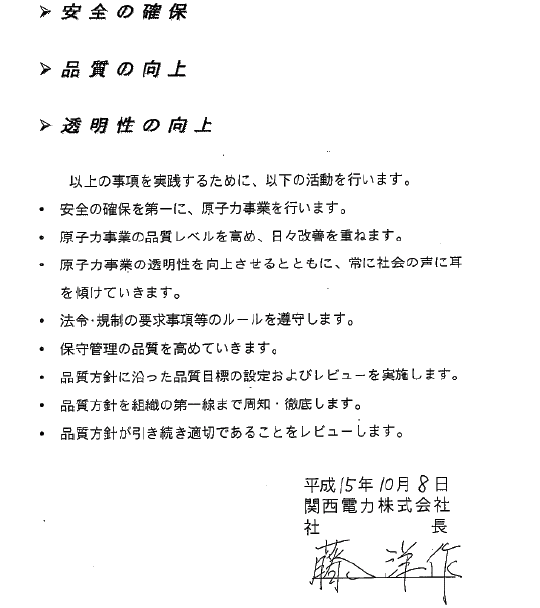 ➢ 安全の確保
➢ 品質の向上
➢ 透明性の向上
以上の事項を実践するために、以下の活動を行います。
• 安全の確保を第一に、原子力事業を行います。
• 原子力事業の品質レベルを高め、日々改善を重ねます。
• 原子力事業の透明性を向上させるとともに、常に社会の声に耳
を傾けていきます。
• 法令・規制の要求事項等のルールを遵守します。
• 保守管理の品質を高めていきます。
• 品質方針に沿った品質目標の設定およびレビューを実施します。
• 品質方針を組織の第一線まで周知・徹底します。
• 品質方針が引き続き適切であることをレビューします。
平成15年10月8日
関西電力株式会社
社長
藤 洋作